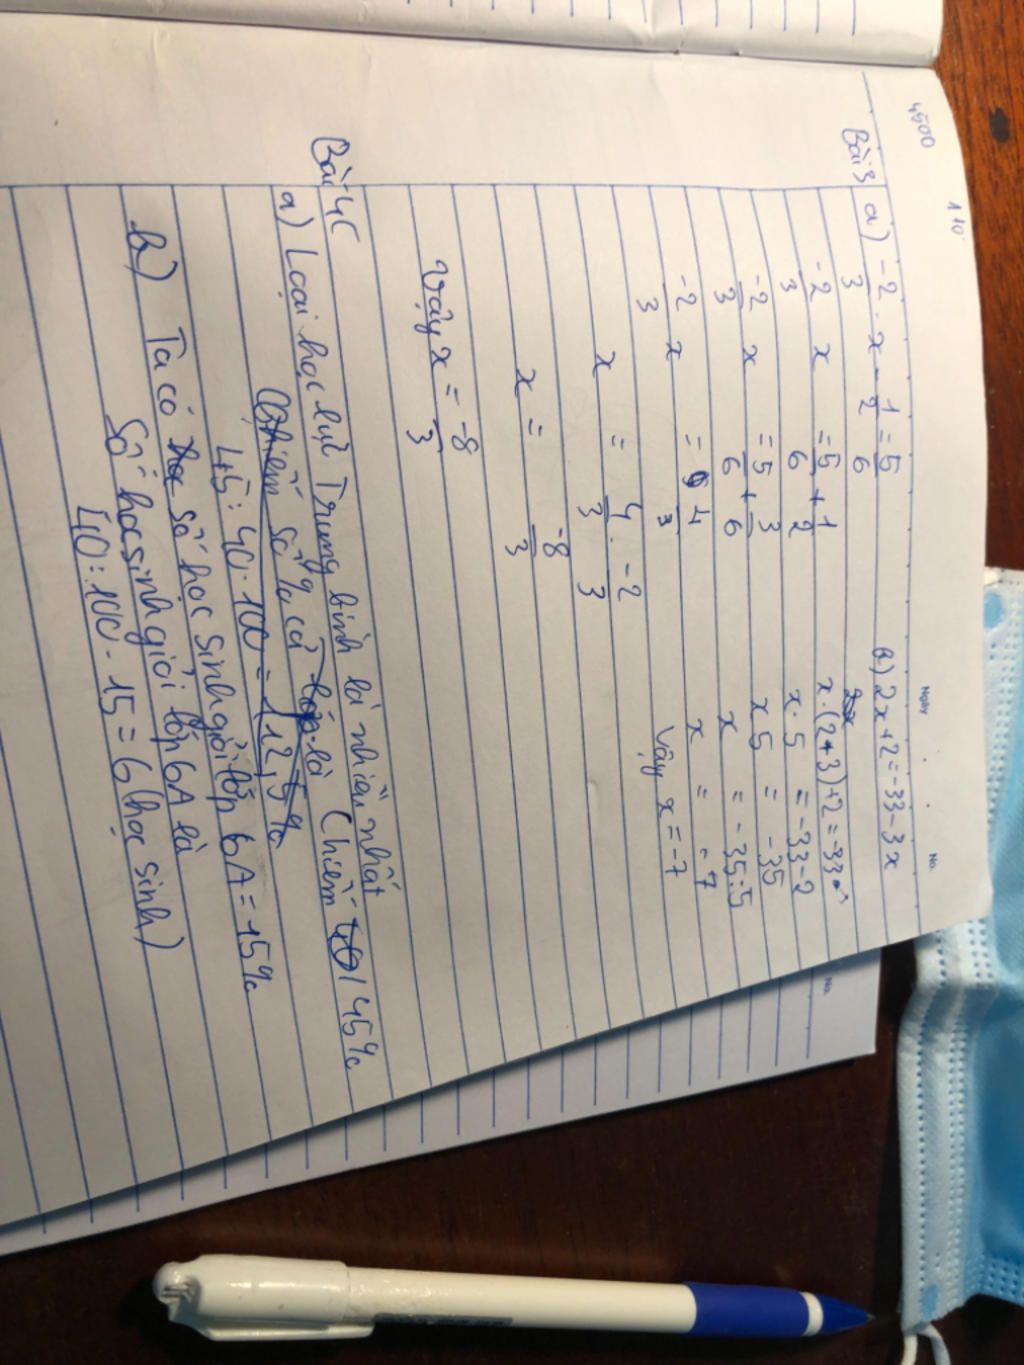 4500
1 10
Ngày . . No.
Bài 3 a) -2/3 . x - 1/2 = 5/6
-2/3 x = 5/6 + 1/2
-2/3 x = 5/6 + 3/6
-2/3 x = 4/3
x = 4/3 . -2/3
x = -8/3
Vậy x = -8/3
b) 2x+2=-33-3x
x.(2+3)+2=-33
x.5 = -33-2
x 5 = -35
x = -35:5
x = -7
Vậy x=-7
Bài 4
a) Loại học lực Trung bình là nhiều nhất
Chiếm số % cả lớp là Chiếm 45%
45:40.100=112,5%
b) Ta có số học sinh giỏi lớp 6A=15%
Số học sinh giỏi lớp 6A là
40:100.15=6(học sinh)
No.